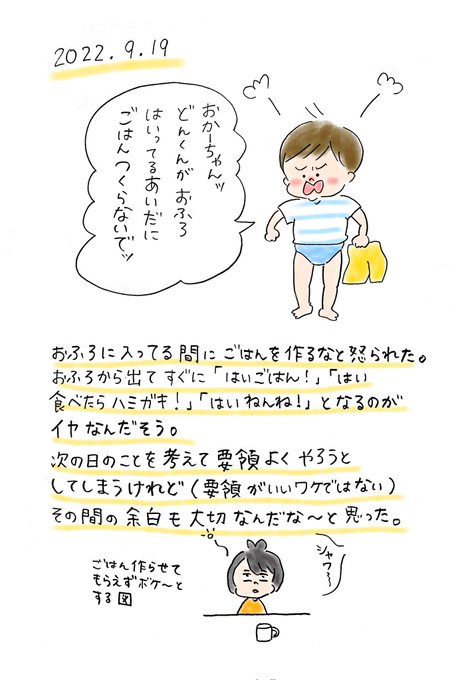 2022.9.19
おかーちゃんッ
どんくんが おふろ
はいってるあいだに
ごはんつくらないでッ
おふろに入ってる間に ごはんを作るなと怒られた。
おふろから出て すぐに「はいごはん!」「はい
食べたら ハミガキ!」「はい ねんね!」となるのが
イヤなんだそう。
次の日のことを考えて要領よく やろうと
してしまうけれど(要領がいいワケではない)
その間の余白も大切なんだな〜と思った。
ごはん作らせて
もらえずボケ〜と
する図
シャワ〜